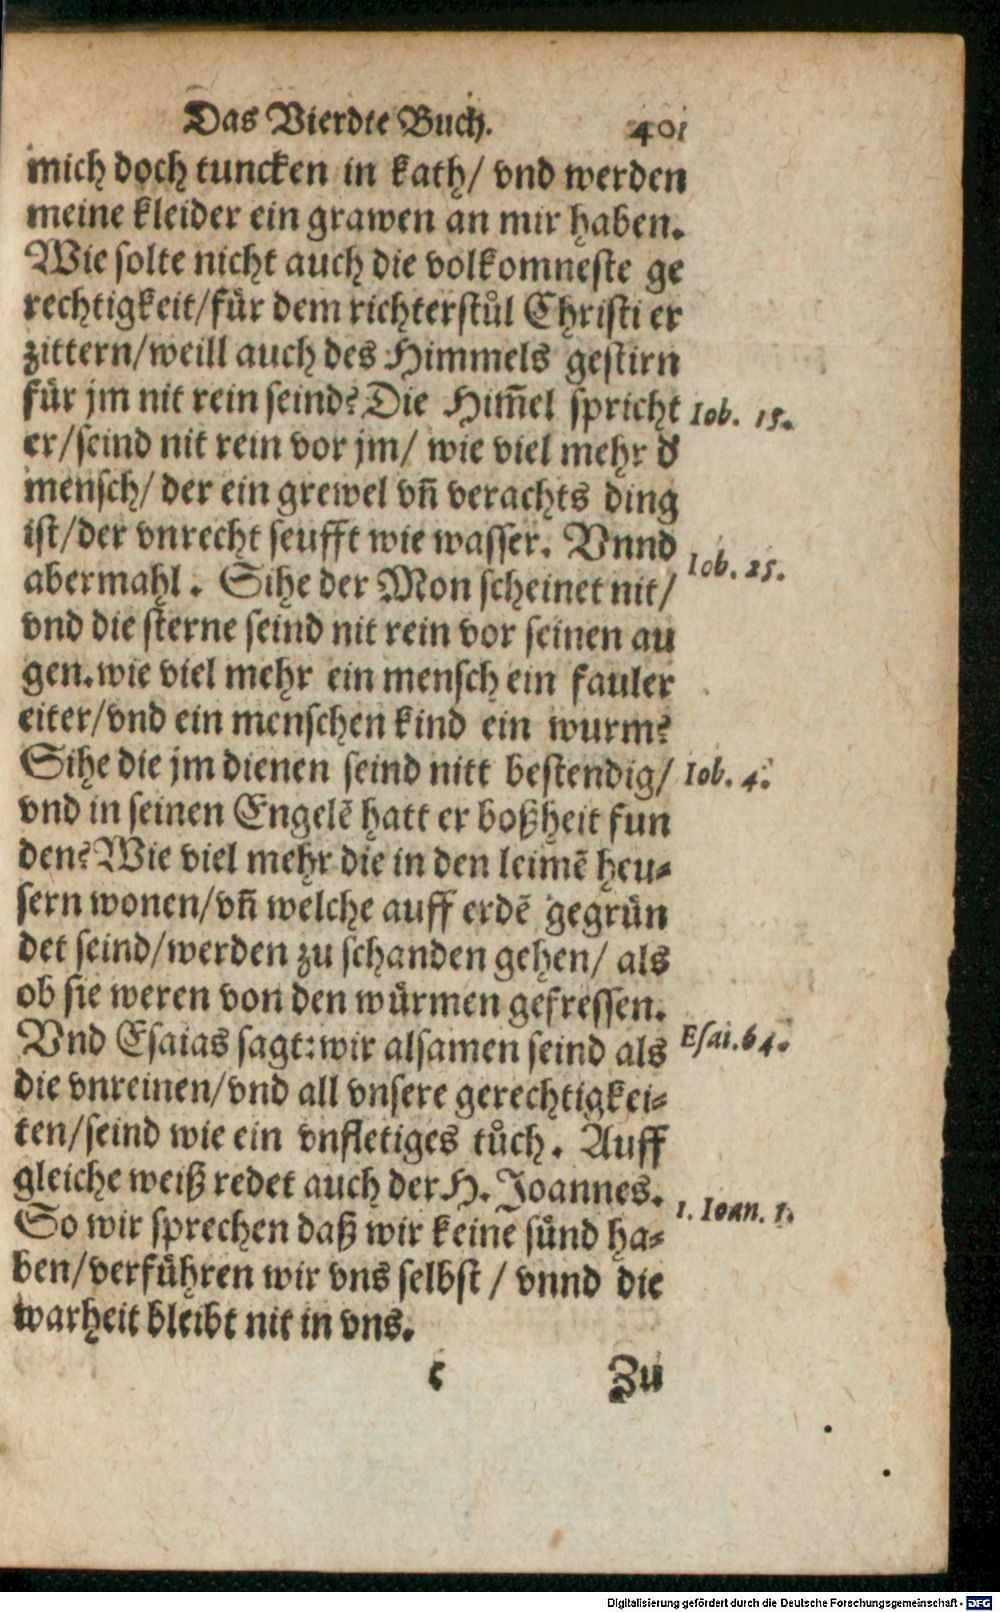 Das Vierdte Buch. 401
mich doch tuncken in kath/ vnd werden
meine kleider ein grawen an mir haben.
Wie solte nicht auch die volkomneste ge
rechtigkeit/für dem richterstůl Christi er
zittern/weill auch des Himmels gestirn
für jm nit rein seind? Die Him̄el spricht Iob. 15.
er/seind nit rein vor jm/ wie viel mehr d'
mensch/ der ein grewel vn̄ verachts ding
ist/der vnrecht seufft wie wasser. Vnnd
abermahl. Sihe der Mon scheinet nit/ Iob. 25.
vnd die sterne seind nit rein vor seinen au
gen. wie viel mehr ein mensch ein fauler
eiter/vnd ein menschen kind ein wurm?
Sihe die jm dienen seind nitt bestendig/ Iob. 4.
vnd in seinen Engelē hatt er boßheit fun
den? Wie viel mehr die in den leimē heu-
sern wonen/vn̄ welche auff erdē gegrün
det seind/werden zu schanden gehen/ als
ob sie weren von den würmen gefressen.
Vnd Esaias sagt: wir alsamen seind als Esai. 64.
die vnreinen/vnd all vnsere gerechtigkei-
ten/seind wie ein vnfletiges tůch. Auff
gleiche weiß redet auch der H. Joannes.
So wir sprechen daß wir keine sünd ha- 1. Ioan. 1.
ben/verführen wir vns selbst / vnnd die
warheit bleibt nit in vns.
c Zu
Digitalisierung gefördert durch die Deutsche Forschungsgemeinschaft - DFG